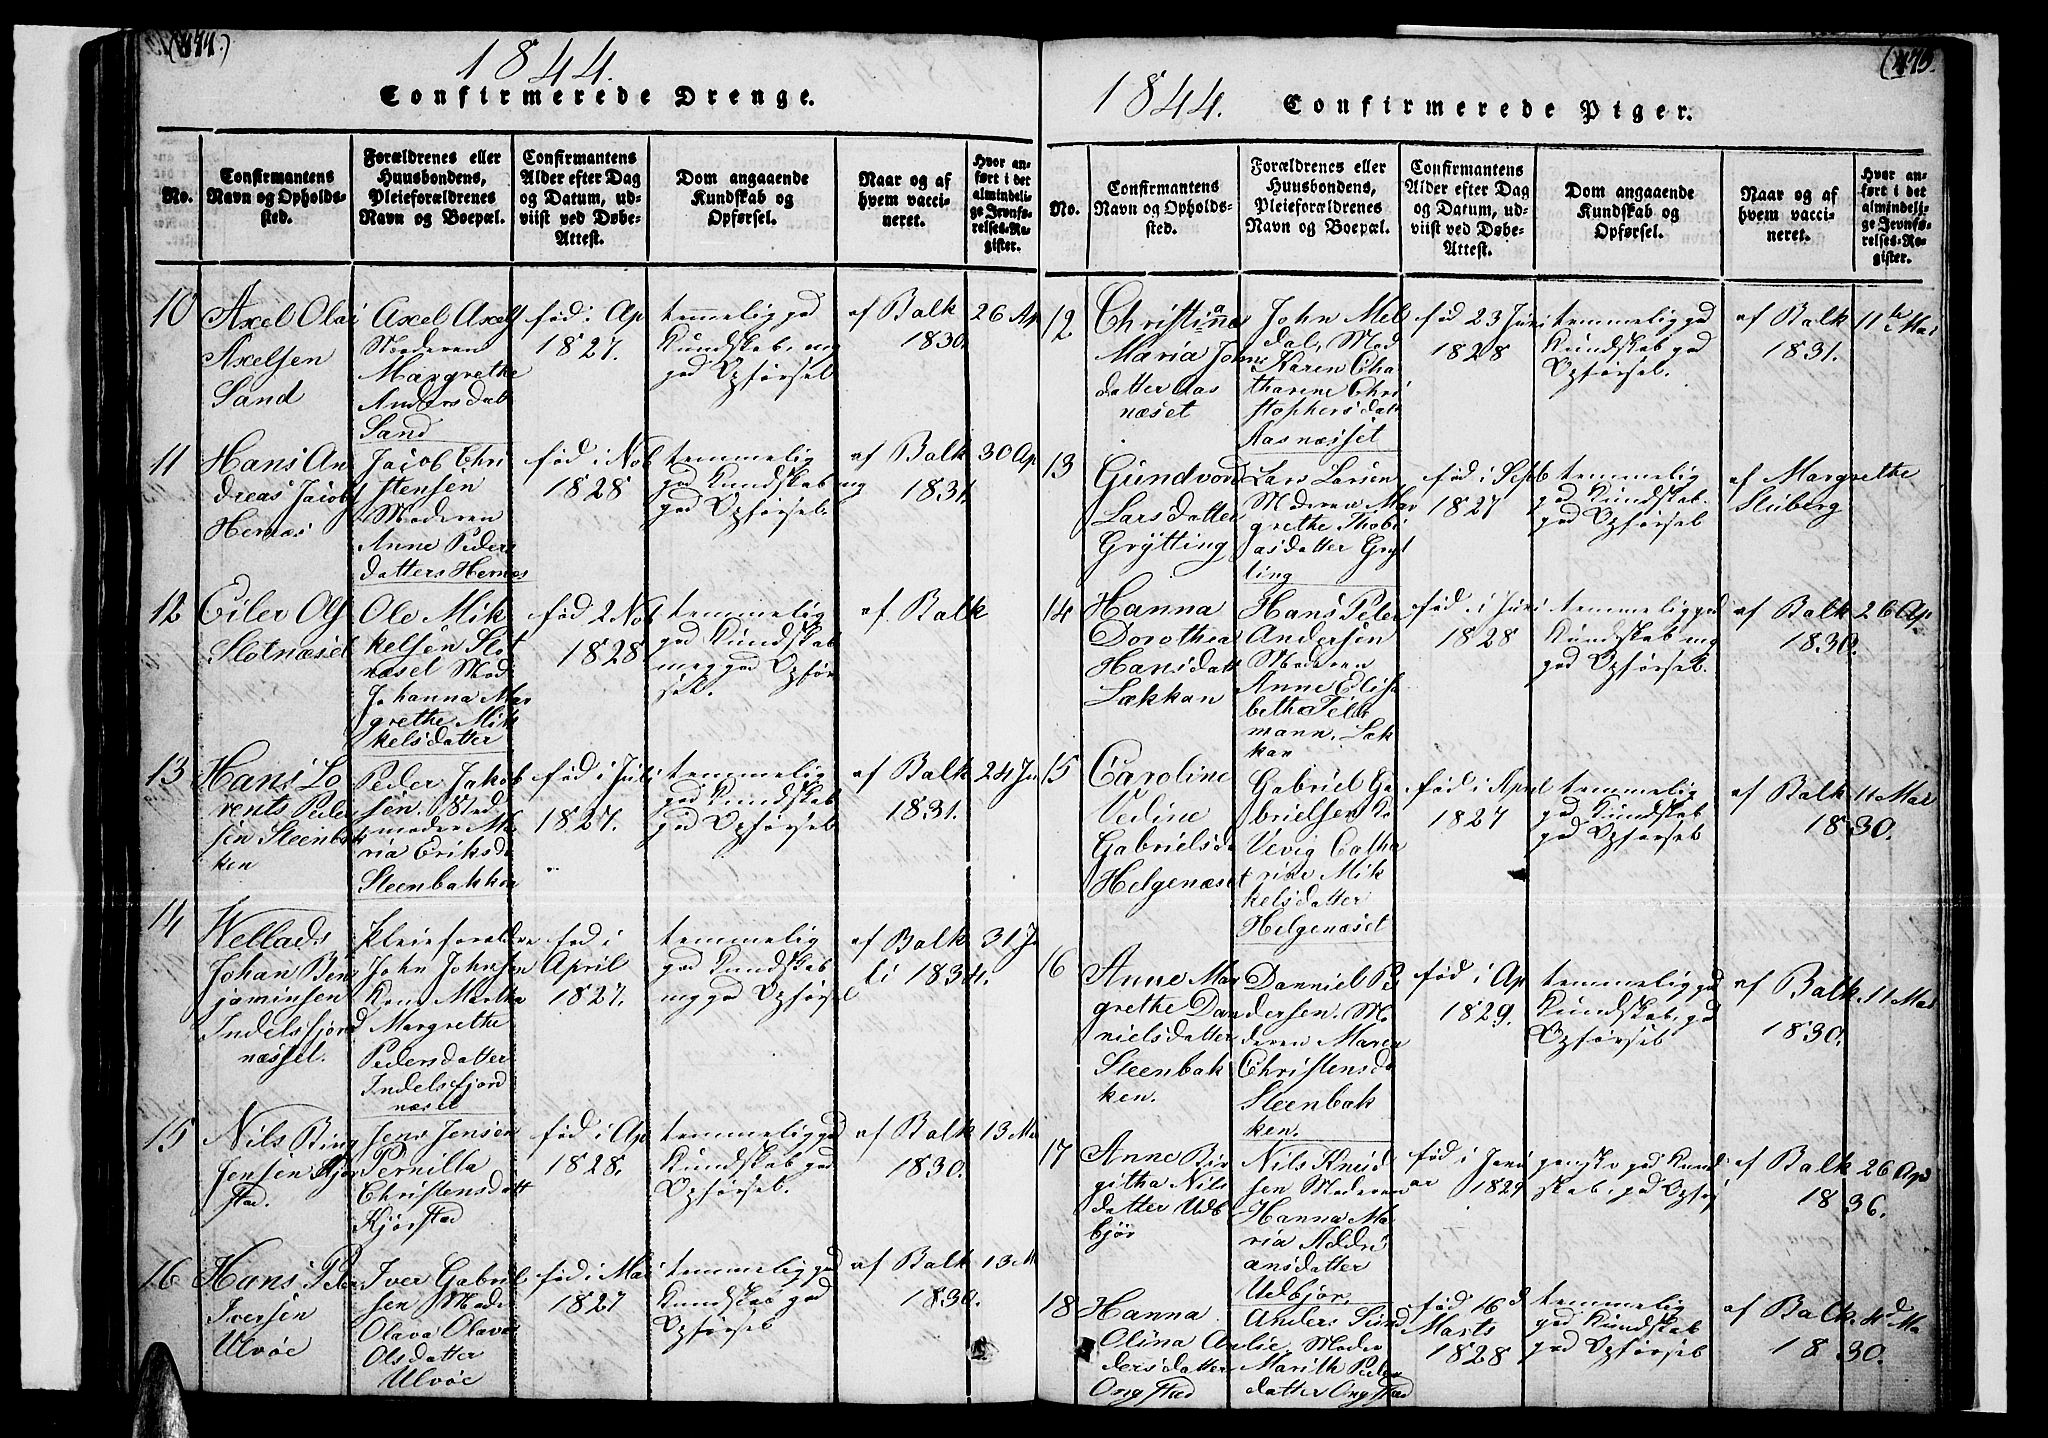 1844.
Confirmerede Drenge.
No.
Confirmantens
Navn og Opholds-
sted.
Forældrenes eller
Huusbondens,
Pleieforældrenes
Navn og Boepæl.
Confirmantens
Alder efter Dag
og Datum, ud-
viist ved Døbe-
Attest.
Dom angaaende
Kundskab og
Opførsel.
Naar og af
hvem vacci-
neret.
Hvor an-
ført i det
almindeli-
ge Jevnfø-
relses-Re-
gister.
10
Axel Olai
Axelsen
Sand
Axel Axels
Moderen
Margrethe
Anders datt
Sand
fød i Ap
1827.
temmelig god
Kundskab, meg
god Opførsel
af Balk
1830.
26 Ap
11
Hans An
dreas Jacobs
Hernæs
Jacob Chri
stensen
Moderen
Anne Peders
datters Hernæs
fød i Nob
1828
temmelig
god Kundskab meg
god Opførsel.
af Balk
1831.
30 Ap
12
Eiler Ols
Slotnæset
Ole Mik
kelsen Slot
næsel Mod
Johanna Mar
grethe Mik
kelsdatter
fød 2 Nob
1828
temmelig
god Kundskab
meg god Opfør
sel.
af Balk
13
Hans Lo
rents Peder
sen Steenbak
ken
Peder Jakob
sen. Sted
moder Ma
ria Eriksda
Steenbakken
fød i Juli
1827.
temmelig
god Kundskab
god Opførsel
af Balk
1831.
24 Ju
14
Wellads
Johan Ben
jaminsen
Indelsfjord
næsset.
Pleieforældre
John Johnsen
Kone Martha
Margrethe
Pedersdatter
Indelsfjord
næset
fød i
April
1827.
temmelig
god Kundskab
meg god Opførsel
af Balk
li 1834.
31 Ju
15
Nils Bing
Jensen Kjør
stad.
Jens Jensen
Pernilla
Christensdatt
Kjørstad
fød i Ap
1828.
temmelig god
Kundskab god
Opførsel.
af Balk
1830.
13 Ma
16
Hans Peter
Iversen
Ulvøe
Iver Gabriel
sen Mode
Olava Olava
Olsdatter
Ulvøe
fød i Mai
1827
temmelig god
Kundskab god
Opførsel
af Balk
1830.
13 M
1844.
Confirmerede Piger.
No.
Confirmantens
Navn og Opholds-
sted.
Forældrenes eller
Huusbondens,
Pleieforældrenes
Navn og Boepæl.
Confirmantens
Alder efter Dag
og Datum, ud-
viist ved Døbe-
Attest.
Dom angaaende
Kundskab og
Opførsel.
Naar og af
hvem vacci-
neret.
Hvor an-
ført i det
almindeli-
ge Jevnfø-
relses-Re-
gister.
12
Christina
Maria Johns
datter Aas
næset
John Mel
dal, Mod
Karen Cha
tharine Chri
stophersdatt
Aasnæsset
fød 23 Juni
1828
temmelig god
Kundskab god
Opførsel.
af Balk
1831.
11te Mai
13
Gundvor
Larsdatter
Grytting
Lars Larsen
Moderen Mar
grethe Thobi
asdatter Gryt
ting
fød i Sept
1827
temmelig
god Kundskab.
god Opførsel
af Margrethe
Stuberg
14
Hanna
Dorothea
Hansdatt
Lækkan
Hans Peter
Andersen
Moderen
Anne Elisa
betha Tell
mann. Læk
kan
fød i Juni
1828
temmelig god
Kundskab meg
god Opførsel.
af Balk
1830.
26 Ap
15
Caroline
Vedine
Gabrielsda
Helgenæset
Gabriel Ga
brielsen Ko
Vevig Catha
rine Mik
kelsdatter
Helgenæset
fød i April
1827
temmelig
god Kundskab
god Opførsel
af Balk
1830.
11 Mai
16
Anne Mar
grethe Dan
nielsdatter
Steenbak
ken.
Danniel Pe
dersen. Mo
deren Maren
Christensda
Steenbak
ken.
fød i Ap
1829.
temmelig god
Kundskab. god
Opførsel
af Balk
1830.
11 Mai
17
Anne Bir
githa Nils
datter Udb
bjør
Nils Knud
sen Moderen
Hanna Ma
ria Addri
ansdatter
Udbjør.
fød i Janu
ar 1829
ganske god Kund
skab, god Opførs
af Balk
1836.
26 Ap
18
Hanna
Olina An
dersdatter
Ongstad
Anders Sund
lie, Moder
Marith Peder
datter Ongstad
fød 16d
Marts
1828
temmelig
god Kundskab
god Opførsel
af Balk
1830.
4d Ma